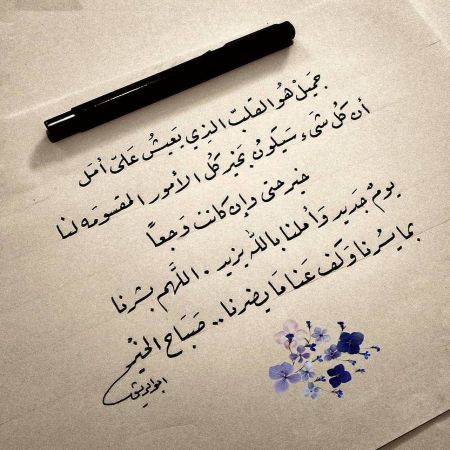 جميلٌ هو القلب الذي يعيش على أمل
أن كل شيء سيكون بخير كل الأمور المقسومه لنا
خير حتى وإن كانت وجعاً
يومٌ جديد وأملنا بالله يزيد . اللهم بشرنا
بما يسرنا وكف عنا ما يضرنا .. صباح الخير